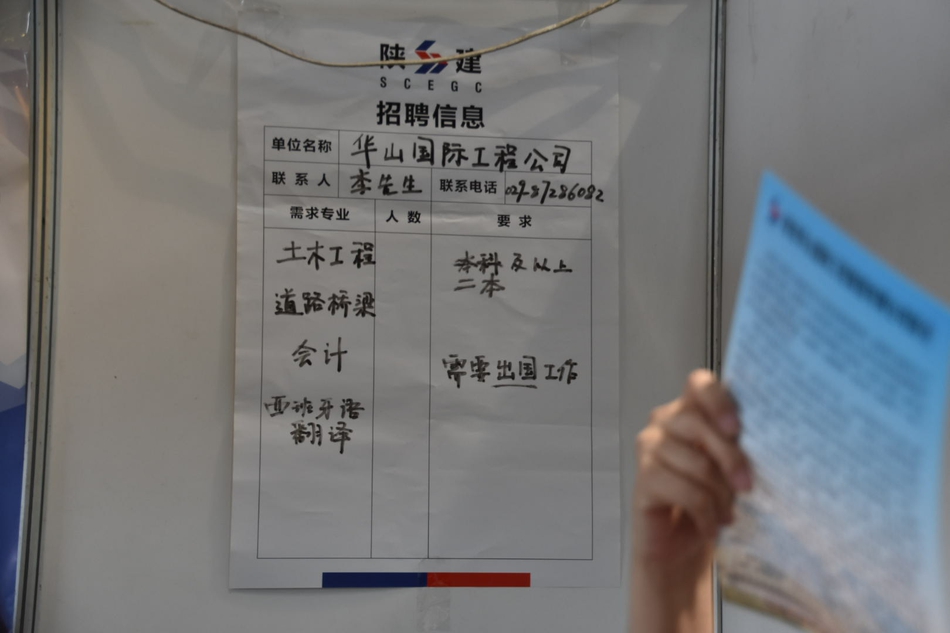 陕 建
SCEGC
招聘信息
单位名称 华山国际工程公司
联系人 李先生 联系电话 029-87286082
需求专业 人数 要求
土木工程 本科及以上
二本
道路桥梁
会计 需要出国工作
西班牙语
翻译